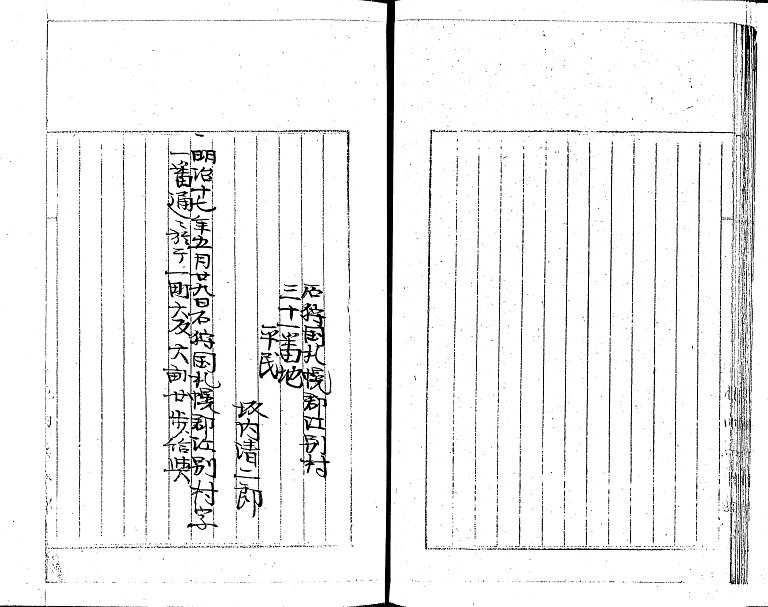 石狩国札幌郡江別村
三十一番地
平民
坂内清二郎
一明治十七年五月廿九日石狩国札幌郡江別村字
一番通ニ於テ一町六反六畝廿歩貸典